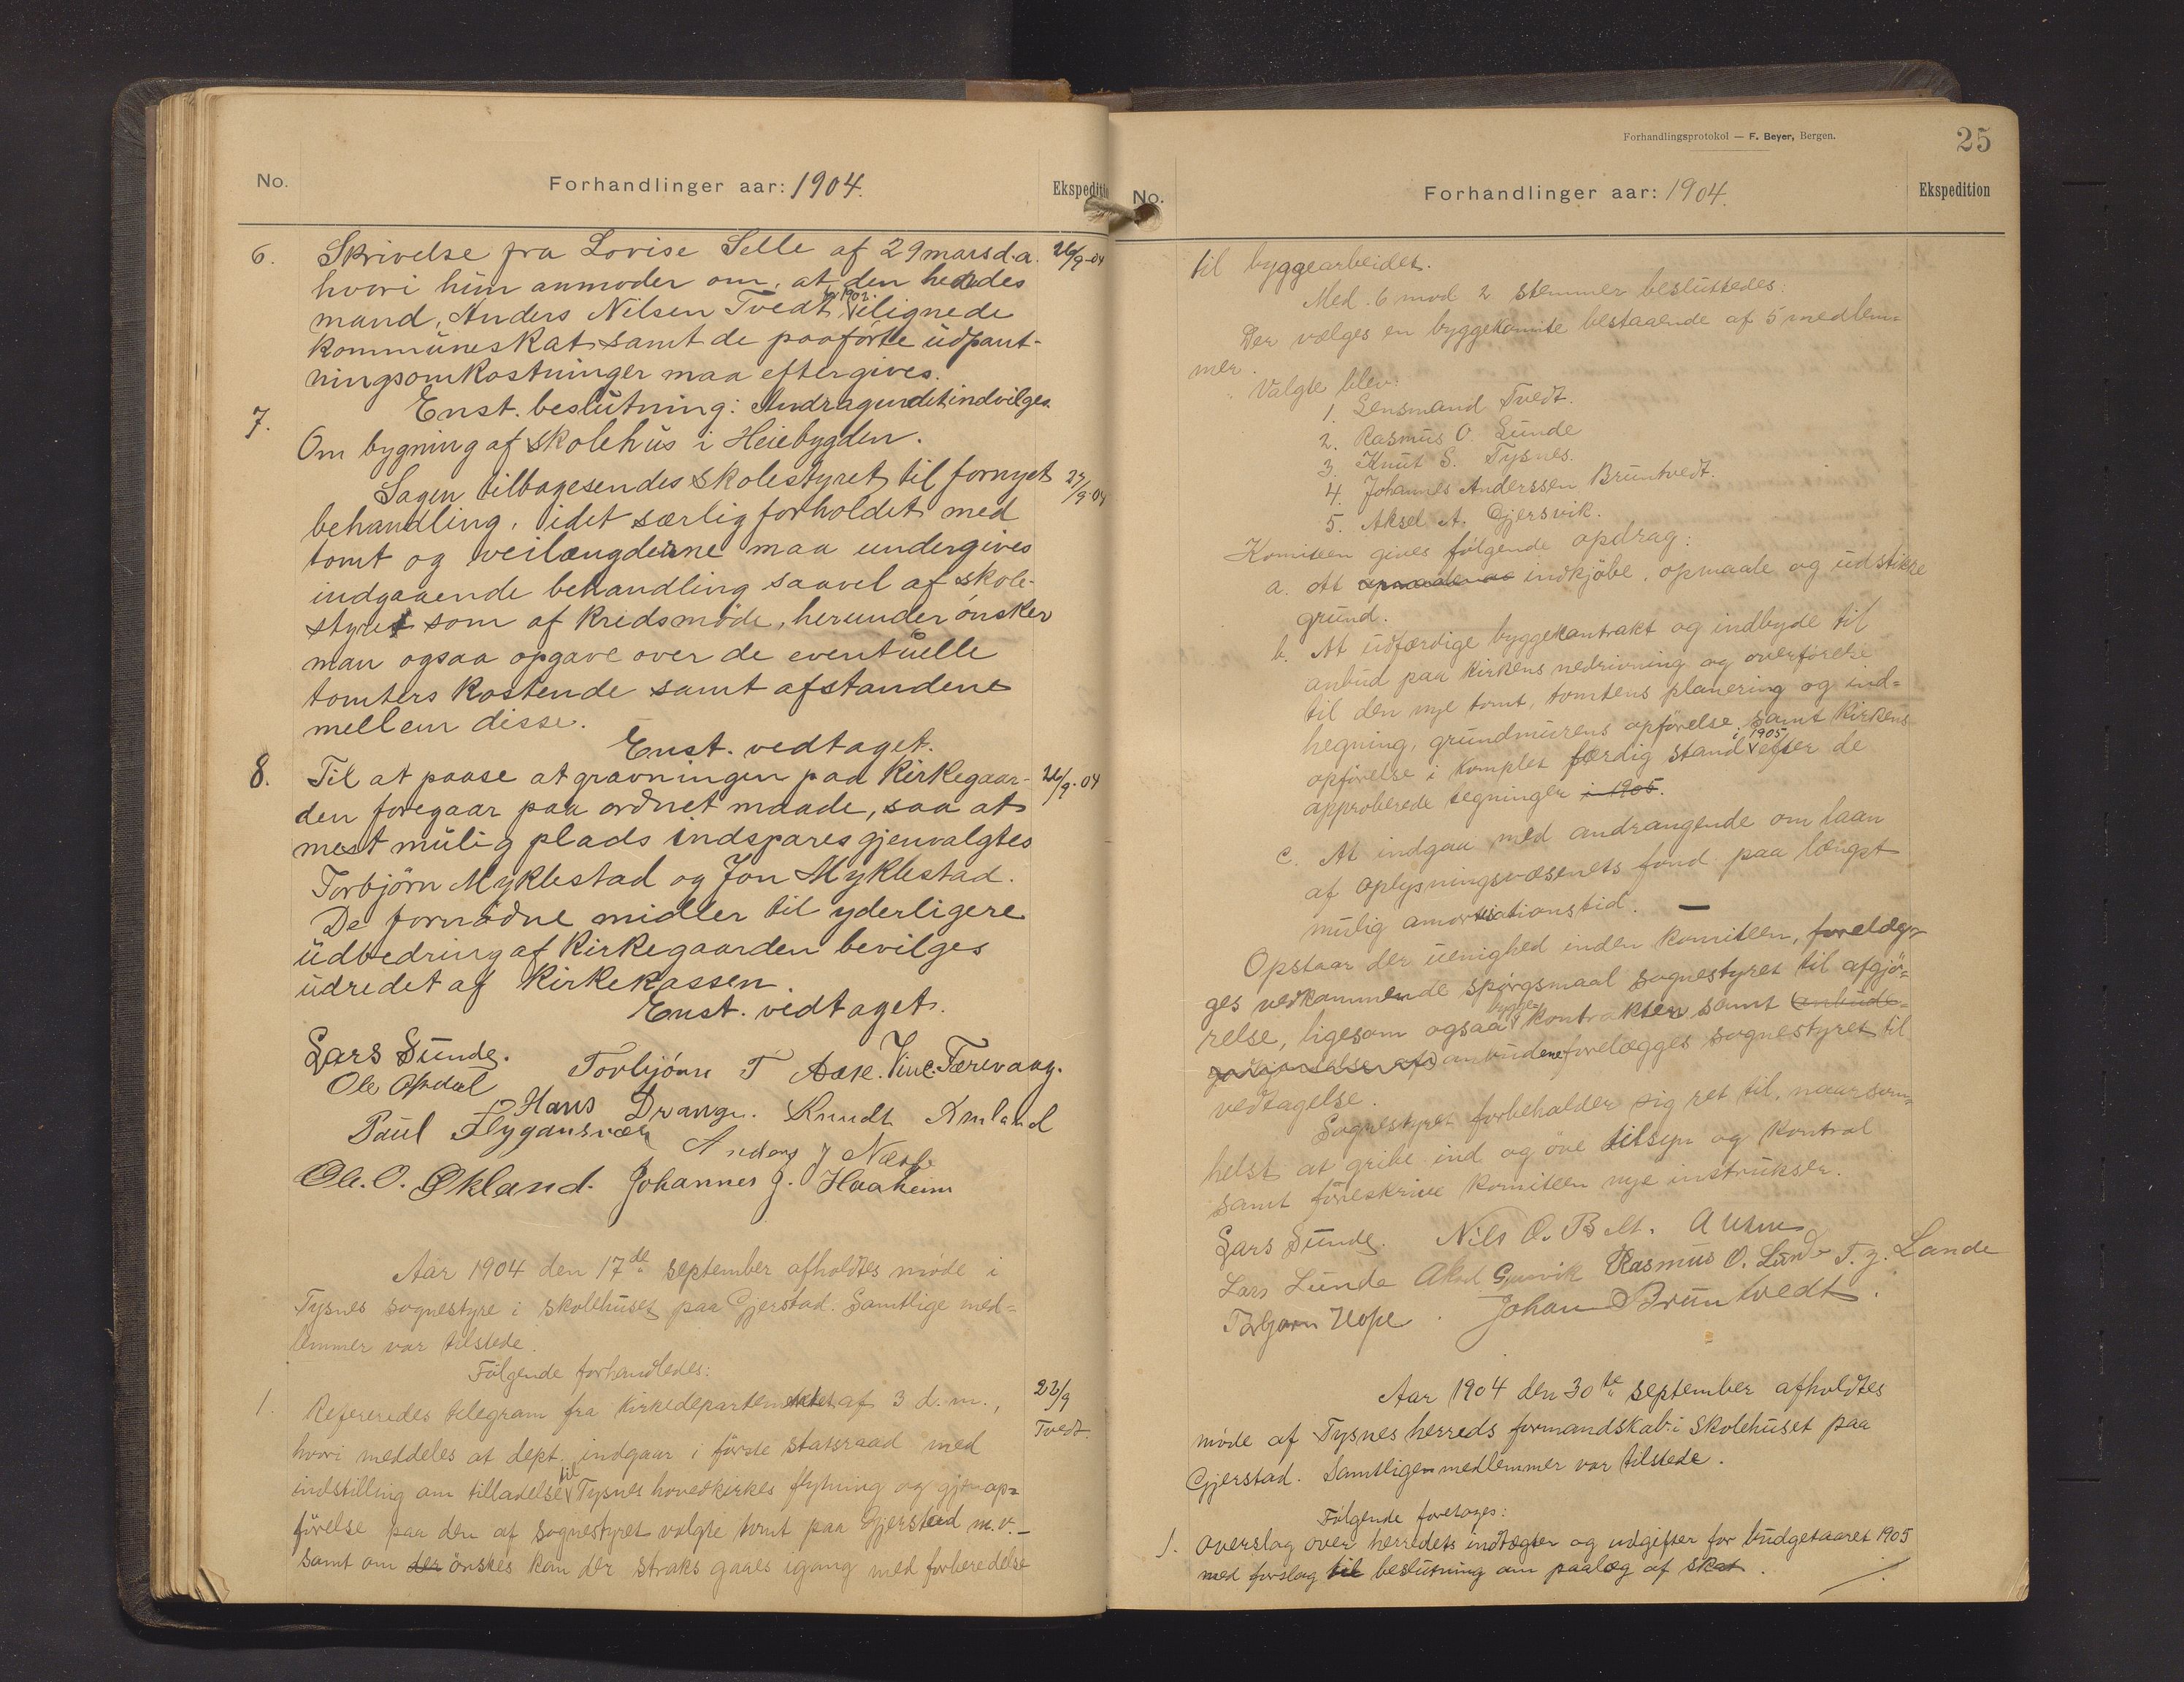 No.
Forhandlinger aar: 1904.
Ekspediti
6. Skrivelse fra Lovise Selle af 29 mars d.a. 26/9-04
hvori hun anmoder om, at den hendes
mand, Anders Nilsen Tvedt, for 1902 ilignede
kommuneskat samt de paaførte udpant-
ningsomkostninger maa eftergives.
Enst. beslutning: Andragendet indvilges
7. Om bygning af skolehus i Heiebygden.
Sagen tilbagesendes skolestyret til fornyet 27/9-04
behandling, idet særlig forholdet med
tomt og veilængderne maa undergives
indgaaende behandling saavel af skole-
styret som af kredsmøde, herunder ønsker
man ogsaa opgave over de eventuelle
tomters kostende samt afstandene
mellem disse.
Enst. vedtaget.
8. Til at paase at gravningen paa kirkegaar- 26/9-04
den foregaar paa ordnet maade, saa at
mest mulig plads indspares gjenvalgtes
Torbjørn Myklestad og Jon Myklestad.
De fornødne midler til yderligere
udbedring af kirkegaarden bevilges
udredet af kirkekassen.
Enst. vedtaget.
Lars Sunde. Torbjörn T Aase. Vinc. Færevaag.
Ole Opdal Hans Drange. Knudt Amland
Paul Flygansvær Anders J Næsse
Ole. O. Økland. Johannes J. Haaheim
Aar 1904 den 17de september afholdtes møde i
Tysnes sognestyre i skolehuset paa Gjerstad. Samtlige med-
lemmer var tilstede.
Følgende forhandledes:
1. Refereredes telegram fra kirkedepartementet af 3 d.m., 22/9
hvori meddeles at dept. indgaar i første statsraad med Tvedt.
indstilling om tilladelse til Tysnes hovedkirkes flytning og gjenop-
førelse paa den af sognestyret valgte tomt paa Gjerstad m.v. -
samt om der ønskes kan der straks gaaes igang med forberedelse
Forhandlingsprotokol — F. Beyer, Bergen.
25
No.
Forhandlinger aar: 1904.
Ekspedition
til byggearbeidet.
Med 6 mod 2 stemmer besluttedes:
Der vælges en byggekomite bestaaende af 5 medlem-
mer.
Valgte blev:
1. Lensmand Tvedt.
2. Rasmus O. Lunde
3. Knut S. Tysnes.
4. Johannes Anderssen Bruntvedt.
5. Aksel A. Gjersvik.
Komiteen gives følgende opdrag:
a. At indkjøbe, opmaale og udstikke
grund.
b. At udfærdige byggekontrakt og indbyde til
anbud paa kirkens nedrivning og overførelse
til den nye tomt, tomtens planering og ind-
hegning, grundmurens opførelse, samt kirkens
opførelse i komplet færdig stand i 1905 efter de
approberede tegninger i 1905.
c. At indgaa med andragende om laan
af oplysningsvæsenets fond paa længst
mulig amortisationstid. —
Opstaar der uenighed inden komiteen, forelæg-
ges vedkommende spørgsmaal sognestyret til afgjø-
relse, ligesom ogsaa byggekontrakten samt
anbudene forelægges sognestyret til
vedtagelse.
Sognestyret forbeholder sig ret til, naarsom-
helst at gribe ind og øve tilsyn og kontrol
samt foreskrive komiteen nye instrukser.
Lars Sunde. Nils O. Belt.
Lars Lunde Aksel Gjersvik Rasmus O. Lunde T. J. Lande
Torbjørn Hope. Johan Bruntvedt.
Aar 1904 den 30te september afholdtes
møde af Tysnes herreds formandskab i skolehuset paa
Gjerstad. Samtlige medlemmer var tilstede.
Følgende foretoges:
1. Overslag over herredets indtægter og udgifter for budgetaaret 1905
med forslag til beslutning om paalæg af skat.